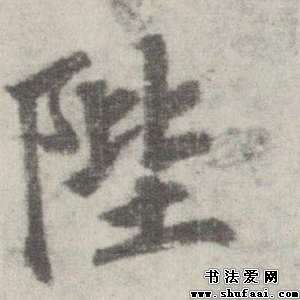 陛
书法爱网
www.shufaai.com